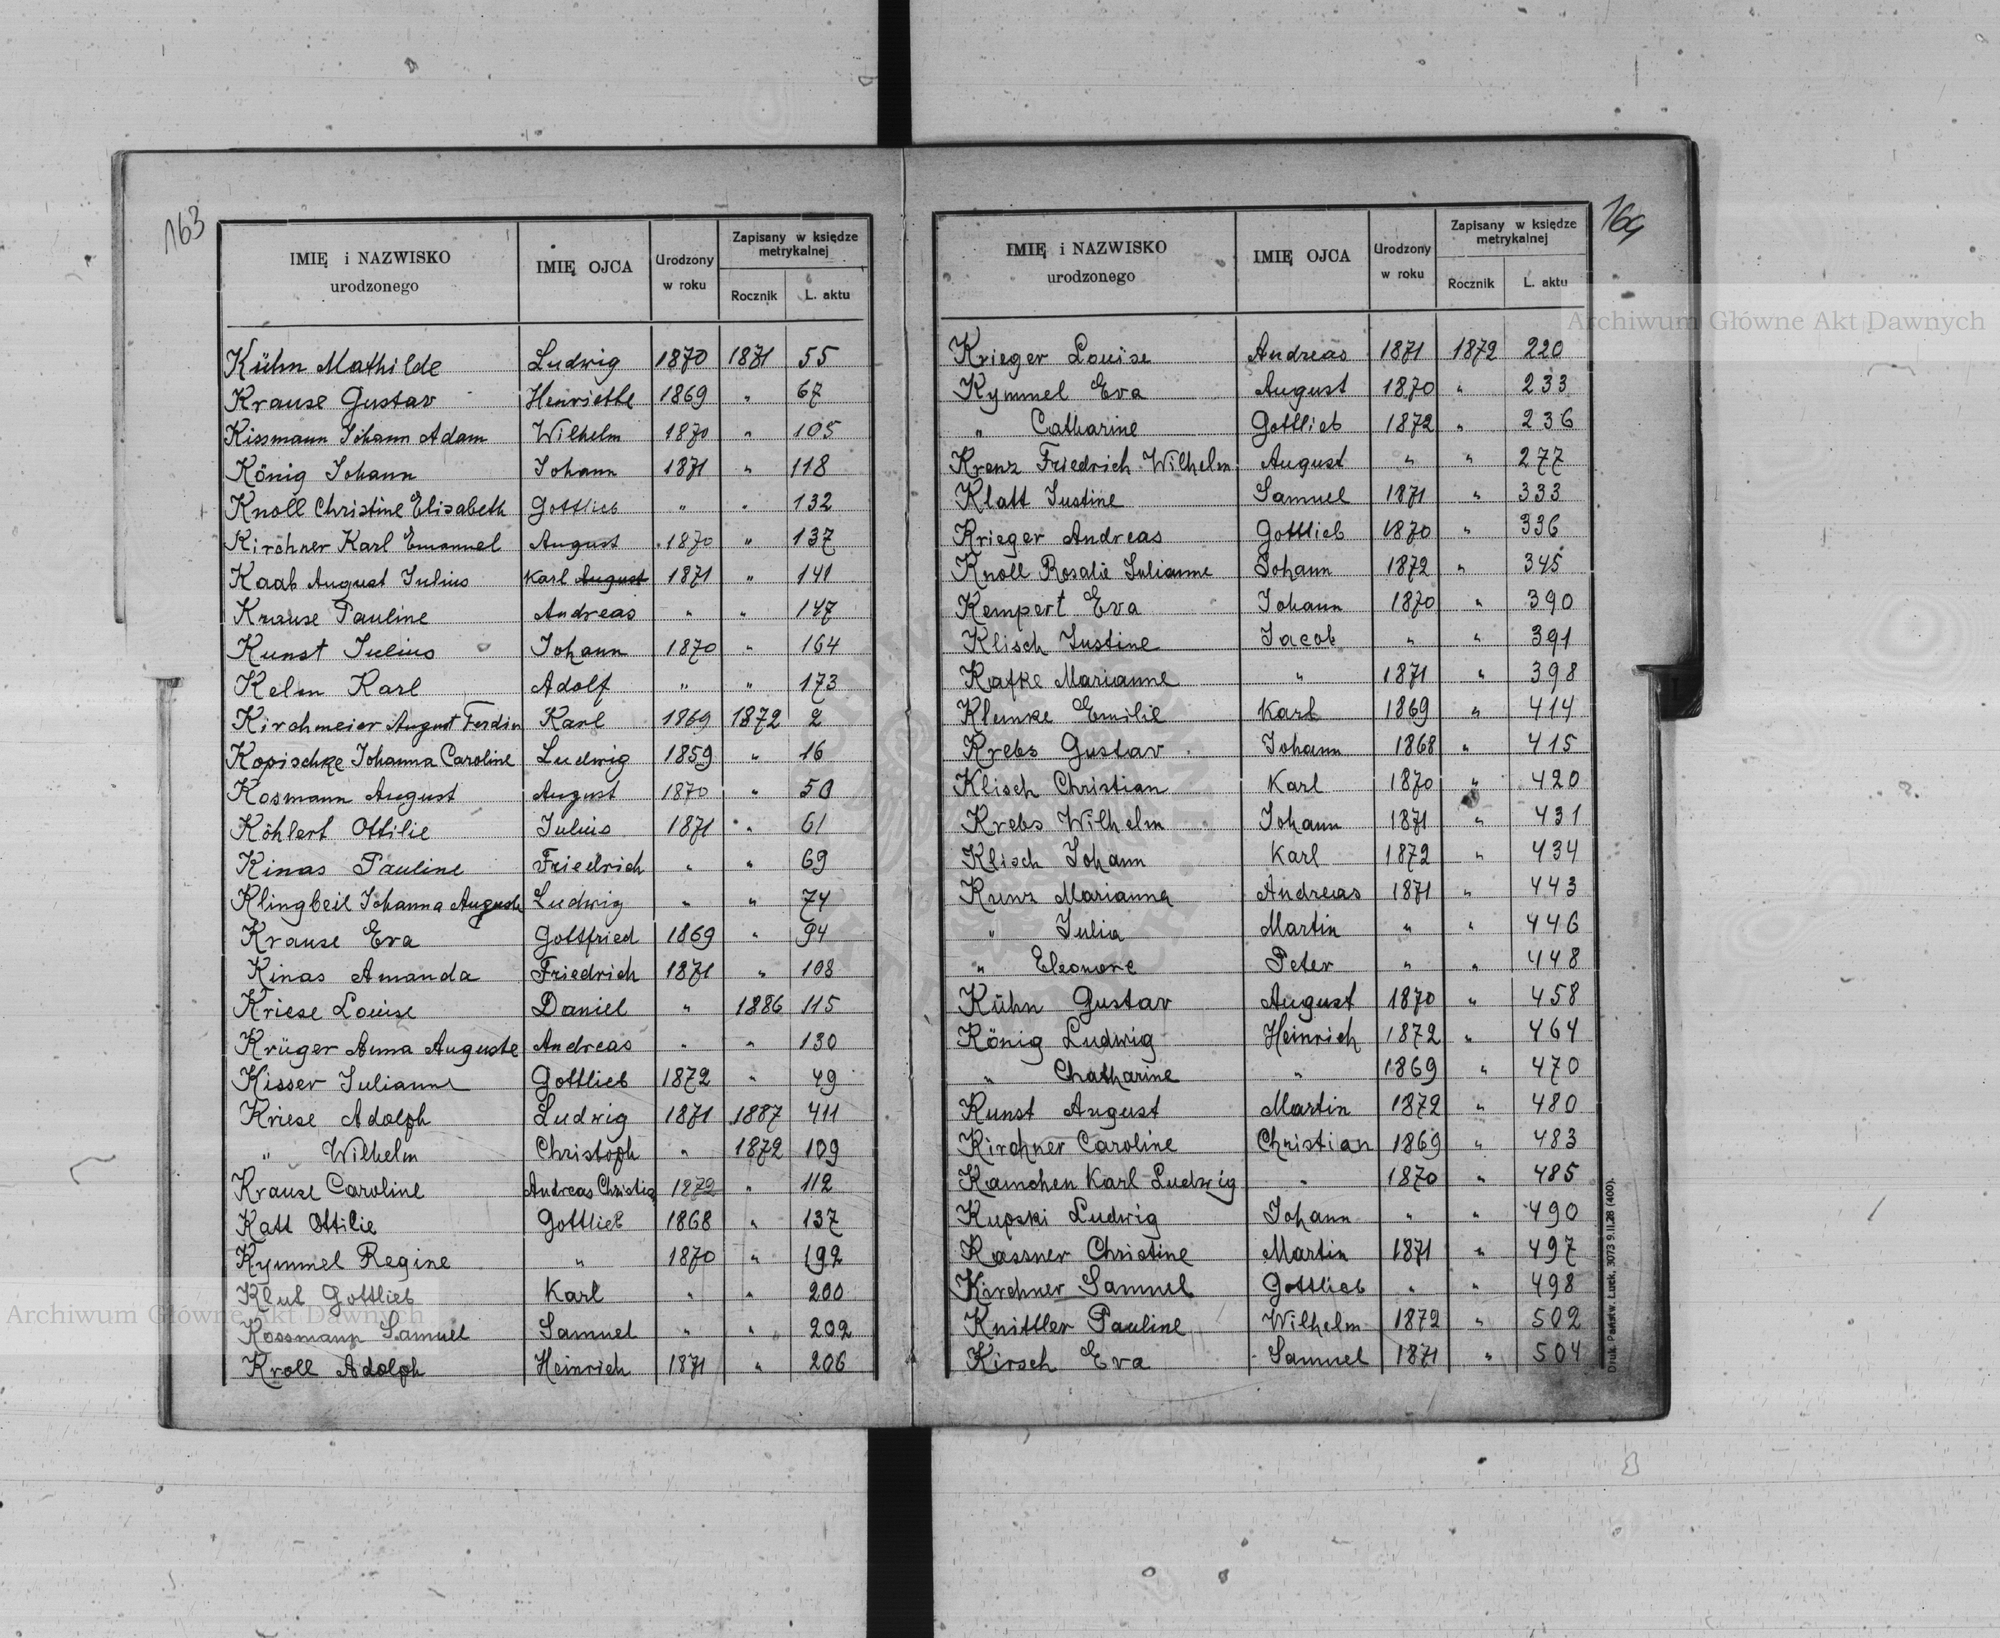 163
IMIĘ i NAZWISKO urodzonego | IMIĘ OJCA | Urodzony w roku | Zapisany w księdze metrykalnej
Rocznik | L. aktu
Kühn Mathilde Ludwig 1870 1871 55
Krause Gustav Henriette 1869 " 67
Kissmann Johann Adam Wilhelm 1870 " 105
König Johann Johann 1871 " 118
Knoll Christine Elisabeth Gottlieb " " 132
Kirchner Karl Emanuel August 1870 " 137
Kaab August Julius Karl August 1871 " 141
Krause Pauline Andreas " " 147
Kunst Julius Johann 1870 " 164
Kelm Karl Adolf " " 173
Kirchmeier August Ferdin Karl 1869 1872 2
Kopischke Johanna Caroline Ludwig 1859 " 16
Kosmann August August 1870 " 50
Köhlert Ottilie Julius 1871 " 61
Kinas Pauline Friedrich " " 69
Klingbeil Johanna Auguste Ludwig " " 74
Krause Eva Gottfried 1869 " 94
Kinas Amanda Friedrich 1871 " 108
Kriese Louise Daniel " 1886 115
Krüger Anna Auguste Andreas " " 130
Kisser Julianne Gottlieb 1872 " 49
Kriese Adolph Ludwig 1871 1887 411
" Wilhelm Christoph " 1872 109
Krause Caroline Andreas Christia 1872 " 112
Katt Ottilie Gottlieb 1868 " 137
Kymmel Regine " 1870 " 192
Gottlieb Karl " " 200
Kossmann Samuel Samuel " " 202
Kroll Adolph Heinrich 1871 " 206
164
IMIĘ i NAZWISKO urodzonego | IMIĘ OJCA | Urodzony w roku | Zapisany w księdze metrykalnej
Rocznik | L. aktu
Krieger Louise Andreas 1871 1872 220
Kymmel Eva August 1870 " 233
" Catharine Gottlieb 1872 " 236
Krenz Friedrich Wilhelm August " " 277
Klatt Justine Samuel 1871 " 333
Krieger Andreas Gottlieb 1870 " 336
Knoll Rosalie Julianne Johann 1872 " 345
Kempert Eva Johann 1870 " 390
Klisch Justine Jacob " " 391
Kafke Marianne " 1871 " 398
Klemke Emilie Karl 1869 " 414
Krebs Gustav Johann 1868 " 415
Klisch Christian Karl 1870 " 420
Krebs Wilhelm Johann 1871 " 431
Klisch Johann Karl 1872 " 434
Kunz Marianna Andreas 1871 " 443
" Julia Martin " " 446
" Eleonore Peter " " 448
Kühn Gustav August 1870 " 458
König Ludwig Heinrich 1872 " 464
" Chatharine " 1869 " 470
Kunst August Martin 1872 " 480
Kirchner Caroline Christian 1869 " 483
Kamchen Karl Ludwig " 1870 " 485
Kupski Ludwig Johann " " 490
Kassner Christine Martin 1871 " 497
Kirchner Samuel Gottlieb " " 498
Knittler Pauline Wilhelm 1872 " 502
Kirsch Eva Samuel 1871 " 504
Druk. Państw. Łuck. 3073 9.II.28 (400).
Archiwum Główne Akt Dawnych
Archiwum Główne Akt Dawnych